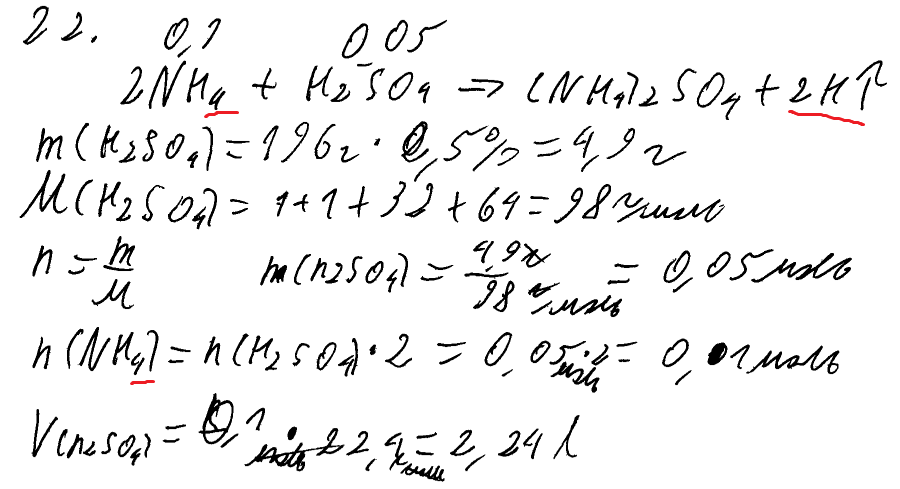 22. 0,1 0,05
2NH4 + H2SO4 => (NH4)2SO4 + 2H↑
m(H2SO4) = 196г · 2,5% = 4,9г
M(H2SO4) = 1+1+32+64 = 98г/моль
n = m/M m(H2SO4) = 4,9г/98г/моль = 0,05моль
n(NH4) = n(H2SO4)·2 = 0,05моль·2 = 0,1моль
V(H2SO4) = 0,1моль · 22,4г/моль = 2,24l